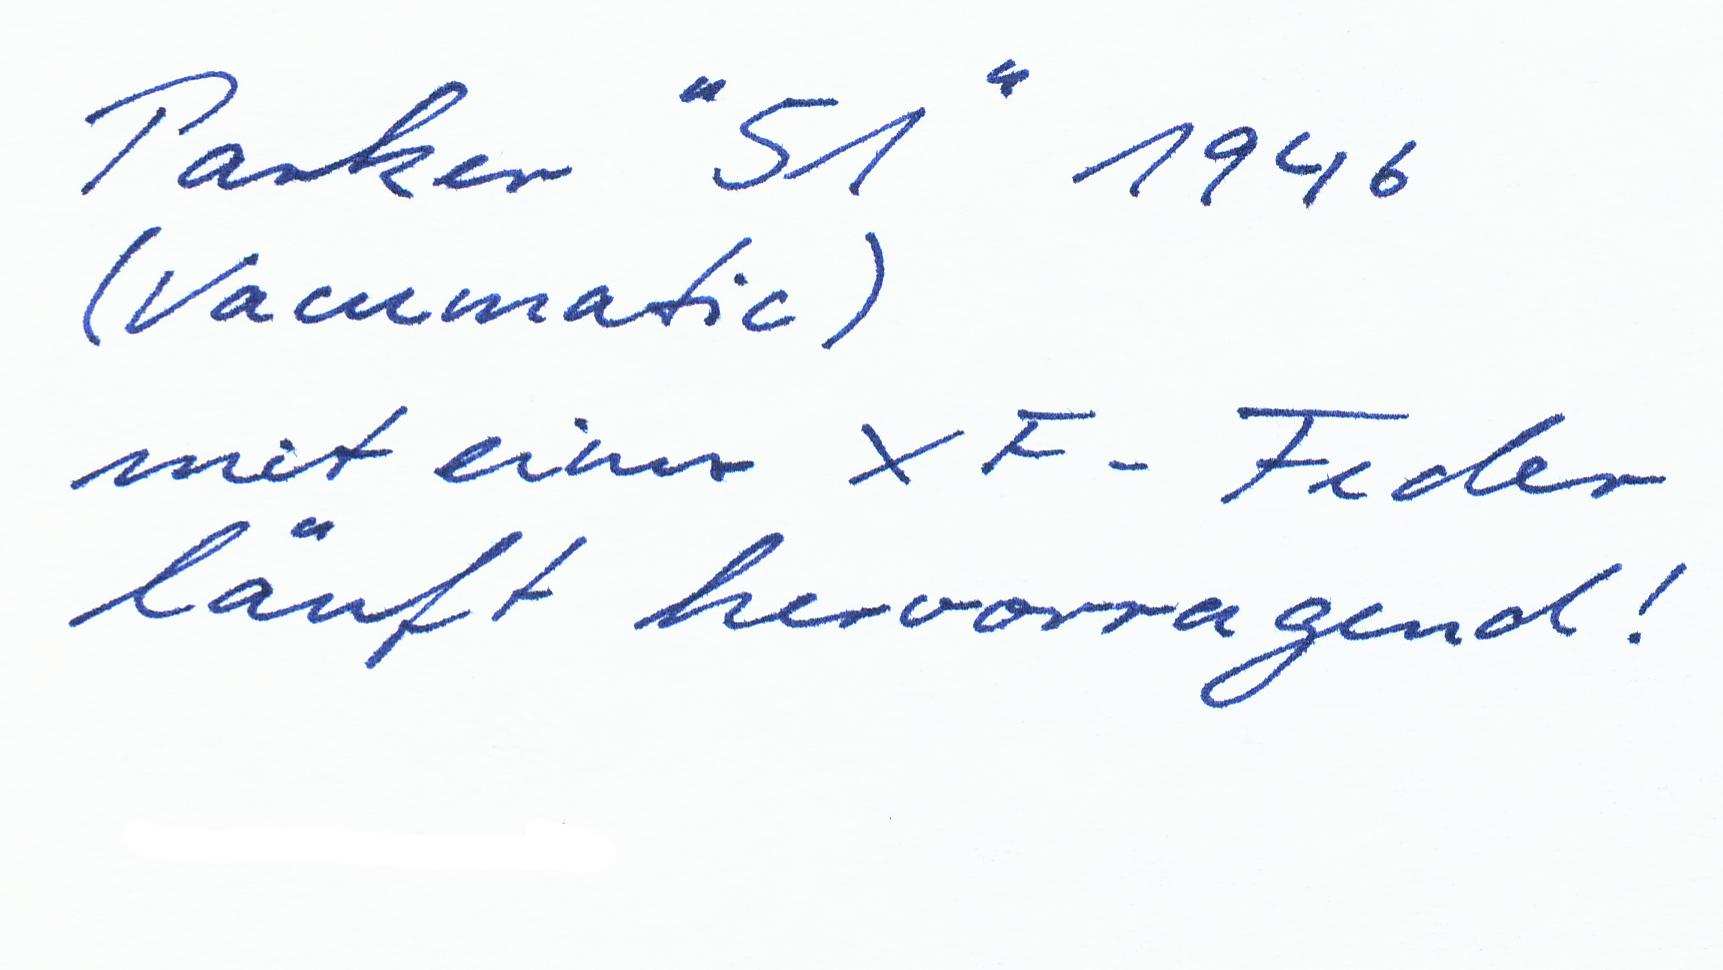 Parker "51" 1946
(Vacumatic)
mit einer XF-Feder
läuft hervorragend!